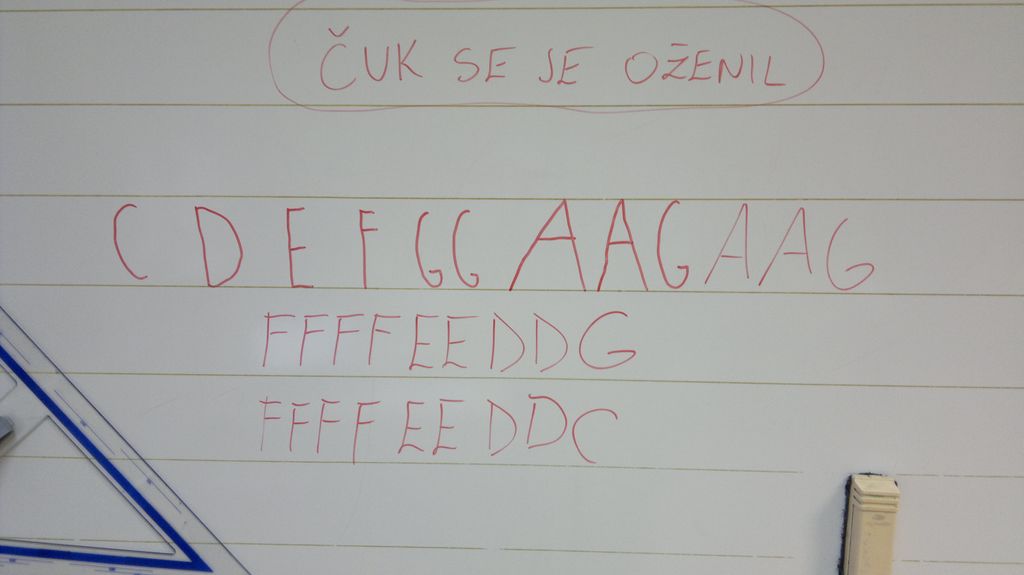 ČUK SE JE OŽENIL
C D E F G G A A G A A G
F F F F E E D D G
F F F F E E D D C